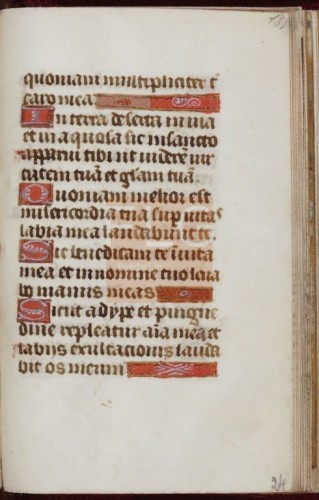 quoniam multipliciter t
caro mea
In terra deserta in uia
et in aquosa sic in sancto
apparui tibi ut uiderē uir
tutem tuā et gl̄am tuā
Quoniam melior est
misericordia tua sup uitas
labia mea laudabunt te
Sic benedicam te ī uita
mea et in nomine tuo leua
bo manus meas
Sicut adype et pingue
dine repleatur aīa mea et
labijs exultacionis lauda
bit os meum
24